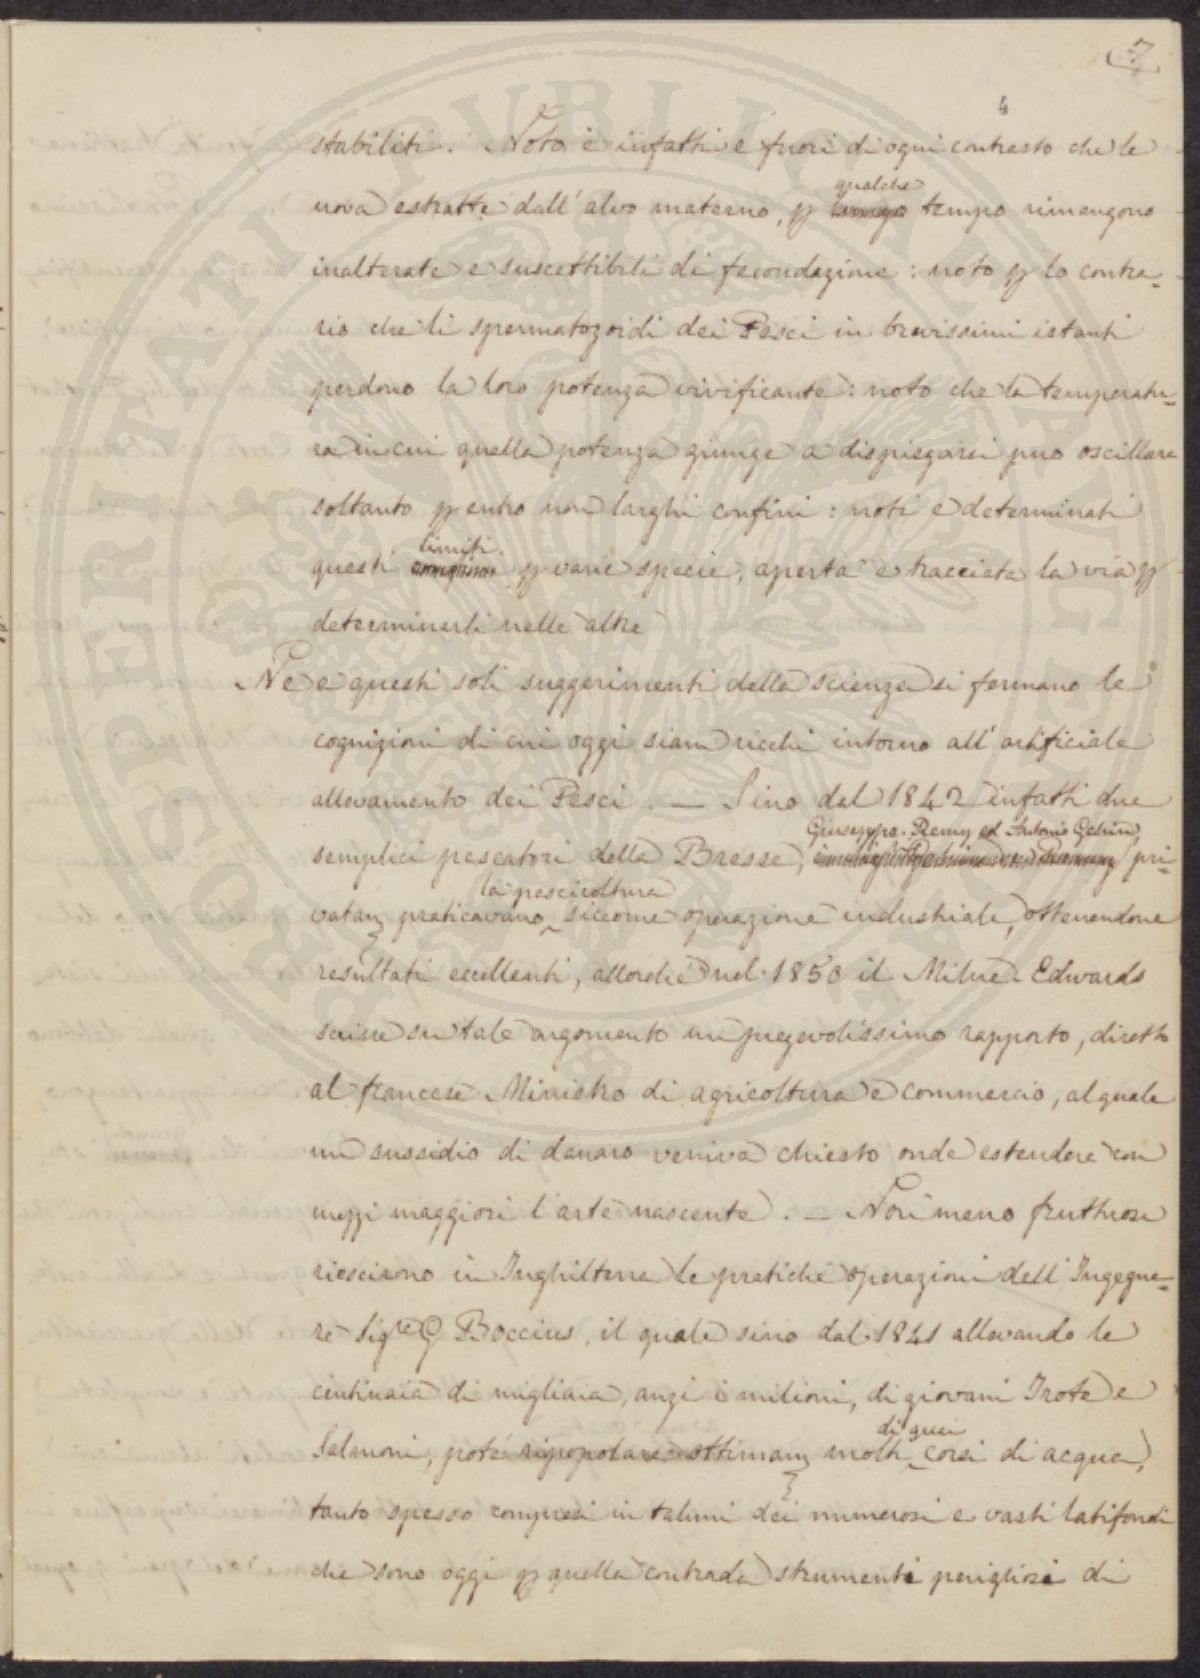 7
4
stabiliti. Noto è infatti e fuori di ogni contrasto che le
qualche
uova estratte dall' alvo materno, p lungo tempo rimangono
inalterate e suscettibili di fecondazione: noto p lo contra-
rio che li spermatozoidi dei Pesci in brevissimi istanti
perdono la loro potenza vivificante: noto che la temperatu-
ra in cui quella potenza giunge a dispiegarsi può oscillare
soltanto p entro non larghi confini: noti e determinati
limiti
questi confini p varie specie, aperta e tracciata la via p
determinarli nelle altre
Ne a questi soli suggerimenti della scienza si fermano le
cognizioni di cui oggi siam ricchi intorno all' artificiale
allevamento dei Pesci. — Sino dal 1842 infatti due
Giuseppe Remy ed Antonio Gehin
semplici pescatori della Bresse, pri-
la pescicoltura
vatam praticavano siccome operazione industriale, ottenendone
resultati eccellenti, allorchè nel 1850 il Milne Edwards
scisse su tale argomento un pregevolissimo rapporto, diretto
al francese Ministro di agricoltura e commercio, al quale
un sussidio di danaro veniva chiesto onde estendere con
mezzi maggiori l'arte nascente. — Non meno fruttuose
riescirono in Inghilterra le pratiche operazioni dell' Ingegne-
re Sigre G Boccius, il quale sino dal 1841 allevando le
centinaia di migliaia, anzi i milioni, di giovani Trote e
di quei
Salmoni, poté ripopolare ottimam molti corsi di acqua,
tanto spesso compresi in taluni dei numerosi e vasti latifondi
che sono oggi p quella contrada strumenti perigliosi di
PROSPERITATI PUBLICAE